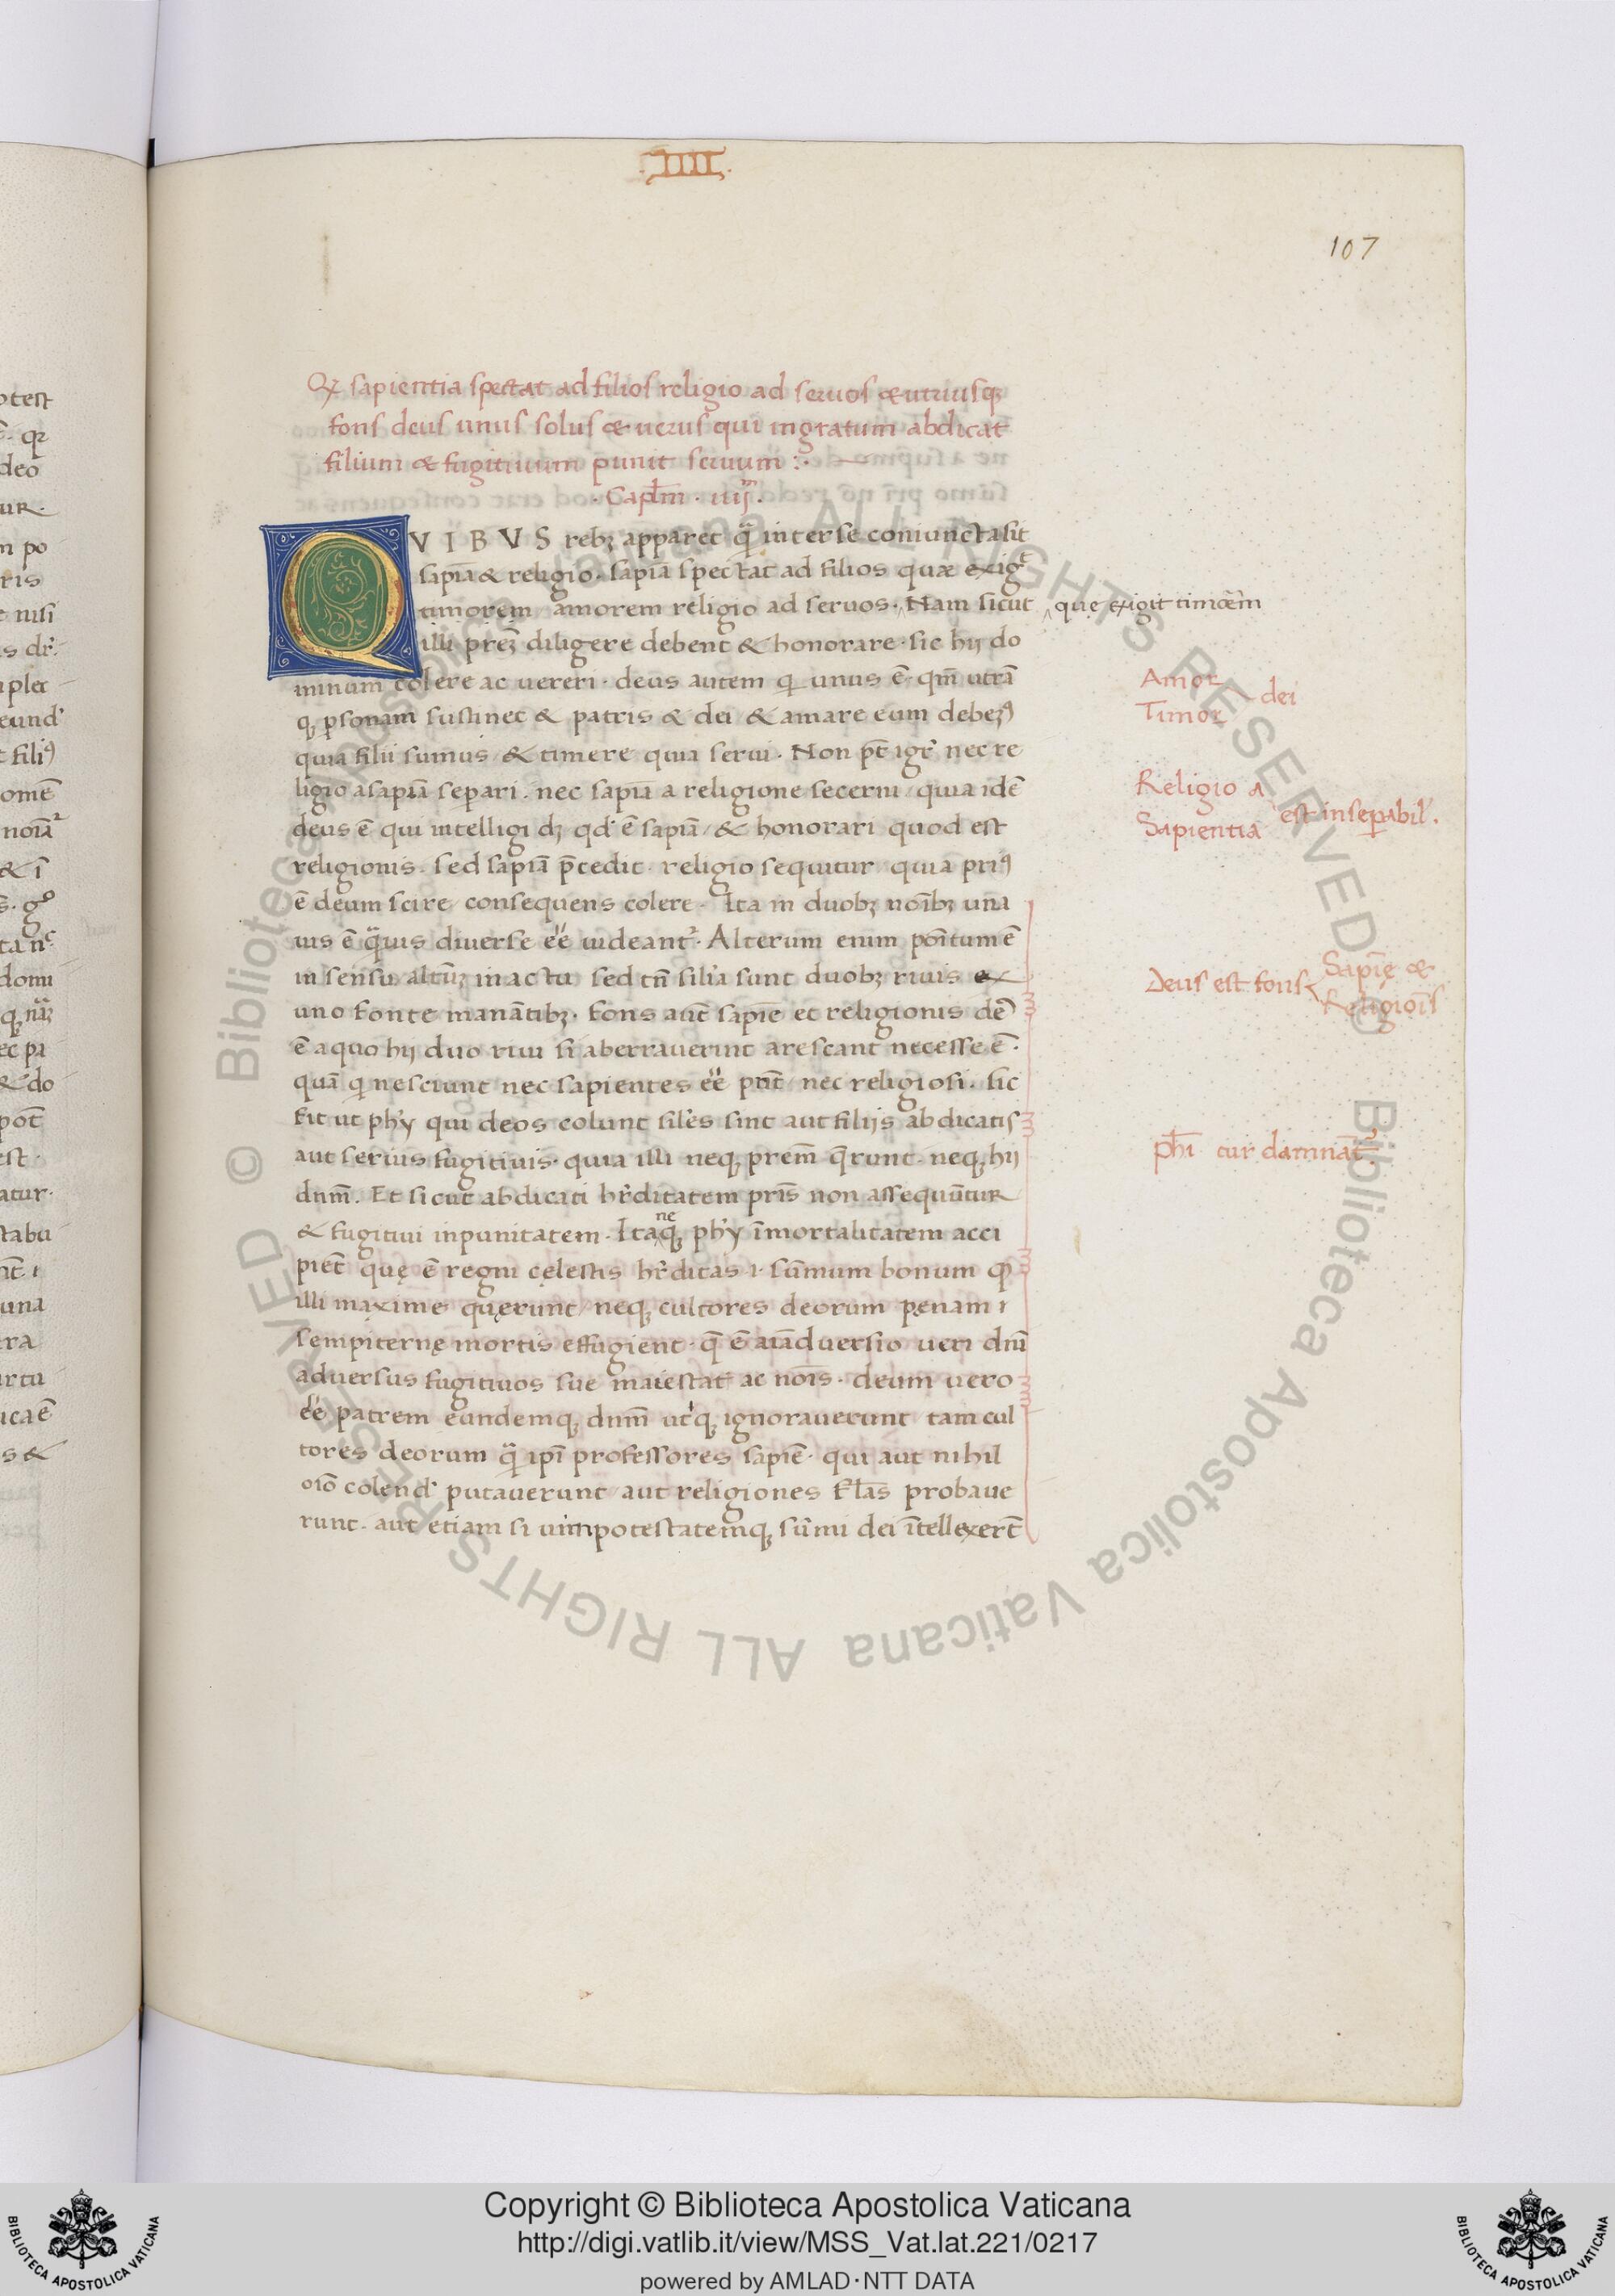 .IIII.
107
Qz sapientia spectat ad filios religio ad seruos & utriusqʒ
fons deus unus solus & uerus qui ingratum abdicat
filium & fugitiuum punit seruum :·
·Caplm · iiij·
QVIBVS rebʒ apparet q̃ inter se coniuncta sit
sapia & religio· sapia spectat ad filios quæ exigt
timorem / amorem religio ad seruos· Nam sicut
que exigit timorem
illi prem diligere debent & honorare· sic hij do
minum colere ac uereri· deus autem q unus ē· qm̄ utrā
qʒ psonam sustinet & patris & dei & amare eum debemꝰ
quia filii sumus / & timere quia serui· Non pt̄ igr̃ nec re
ligio a sapiā separi· nec sapiā a religione secerni / quia idē
deus ē qui intelligi dʒ qd̓ ē sapiā / & honorari quod est
religionis· sed sapiā p̄cedit· religio sequitur / quia priꝰ
ē deum scire / consequens colere· Ita in duobʒ noībʒ una
uis ē q̃uis diuerse eē uideantᷣ· Alterum enim poitum ē
in sensu altūʒ in actu sed tn̄ silia sunt duobʒ riuis ex
uno fonte manātibʒ· fons aut̄ sapiē et religionis dē
ē a quo hij duo riui si aberrauerint arescant necesse ē·
quā q nesciunt nec sapientes eē pnt̄ / nec religiosi· sic
fit ut phỹ qui deos colunt siles sint aut filijs abdicatis
aut seruis fugitiuis· quia illi neqʒ prem̄ q̄runt· neqʒ hij
dnm̄· Et sicut abdicati hr̓ditatem pris̄ non assequūtur
& fugitiui inpunitatem· Itaqʒ ne phỹ īmortalitatem acci
piēt quę ē regni cęlestis hr̓ditas i· sūmum bonum qd̓
illi maxime quęrunt / neqʒ cultores deorum pęnam
sempiternę mortis effugient· q̄ ē aiaduersio ueri dnī
aduersus fugitiuos sue maiestat̄ ac nois̄· deum uero
eē patrem eundemqʒ dnm̄ utqʒ ignorauerunt / tam cul
tores deorum q̃ ipi professores sapiē· qui aut nihil
oīo colend̓ putauerunt / aut religiones flas̄ probaue
runt· aut etiam si uim potestatemqʒ sūmi dei ītellexert̄
Amor
Timor
dei
Religio a
Sapientia
est inseparabil̓.
Deus est fons
Sapię &
Religiois̄
phi cur damnat̄ᷣ
Copyright © Biblioteca Apostolica Vaticana
http://digi.vatlib.it/view/MSS_Vat.lat.221/0217
powered by AMLAD·NTT DATA
BIBLIOTECA APOSTOLICA VATICANA
BIBLIOTECA APOSTOLICA VATICANA
© Biblioteca Apostolica Vaticana ALL RIGHTS RESERVED
© Biblioteca Apostolica Vaticana ALL RIGHTS RESERVED